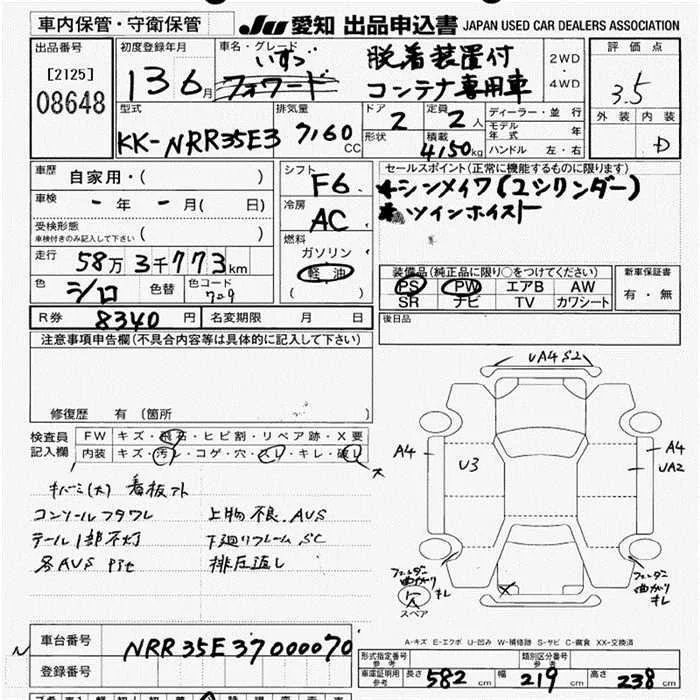 車内保管・守衛保管
JU 愛知 出品申込書 JAPAN USED CAR DEALERS ASSOCIATION
出品番号
[2125]
08648
初度登録年月
13 6月
車名・グレード
いすゞ
フォワード
脱着装置付
コンテナ専用車
2WD
・
4WD
評価点
3.5
外装 内装
D
型式
KK-NRR35E3
排気量
7160 CC
ドア
2
形状
定員
2人
積載
4150kg
ディーラー・並行
モデル年式 年
ハンドル 左・右
車歴
自家用・( )
車検
- 年 - 月( 日)
受検形態
車検付きのみ記入して下さい ( )
走行
58万3千773km
色
シロ
色替
色コード
729
R券 8340円
名変期限 月 日
シフト
F6
冷房
AC
燃料
ガソリン
軽油
( )
セールスポイント(正常に機能するものに限ります)
シンメイワ(2シリンダー)
ツインホイスト
装備品(純正品に限り○をつけてください)
PS PW エアB AW
SR ナビ TV カワシート
新車保証書
有・無
後日品
注意事項申告欄(不具合内容等は具体的に記入して下さい)
修復歴 有 (箇所 )
検査員
記入欄
FW キズ・飛石・ヒビ割・リペア跡・X要
内装 キズ・汚レ・コゲ・穴・スレ・キレ・破レ
大
キバミ(大) 看板アト
コンソールフタワレ
テール1部不灯
各AUS
上物不良.AUS
下廻りフレームSC
排圧返し
UA4 S2
A4
U3
A4
UA2
フェンダー
曲がり
キレ
スペア
X
フェンダー
曲がり
キレ
A-キズ E-エクボ U-凹み W-補修跡 S-サビ C-腐食 XX-交換済
N
車台番号
NRR35E37000070
登録番号
形式指定番号
参考
類別区分番号
参考
車庫証明用
参考
長さ 582 cm 幅 219 cm 高さ 238 cm